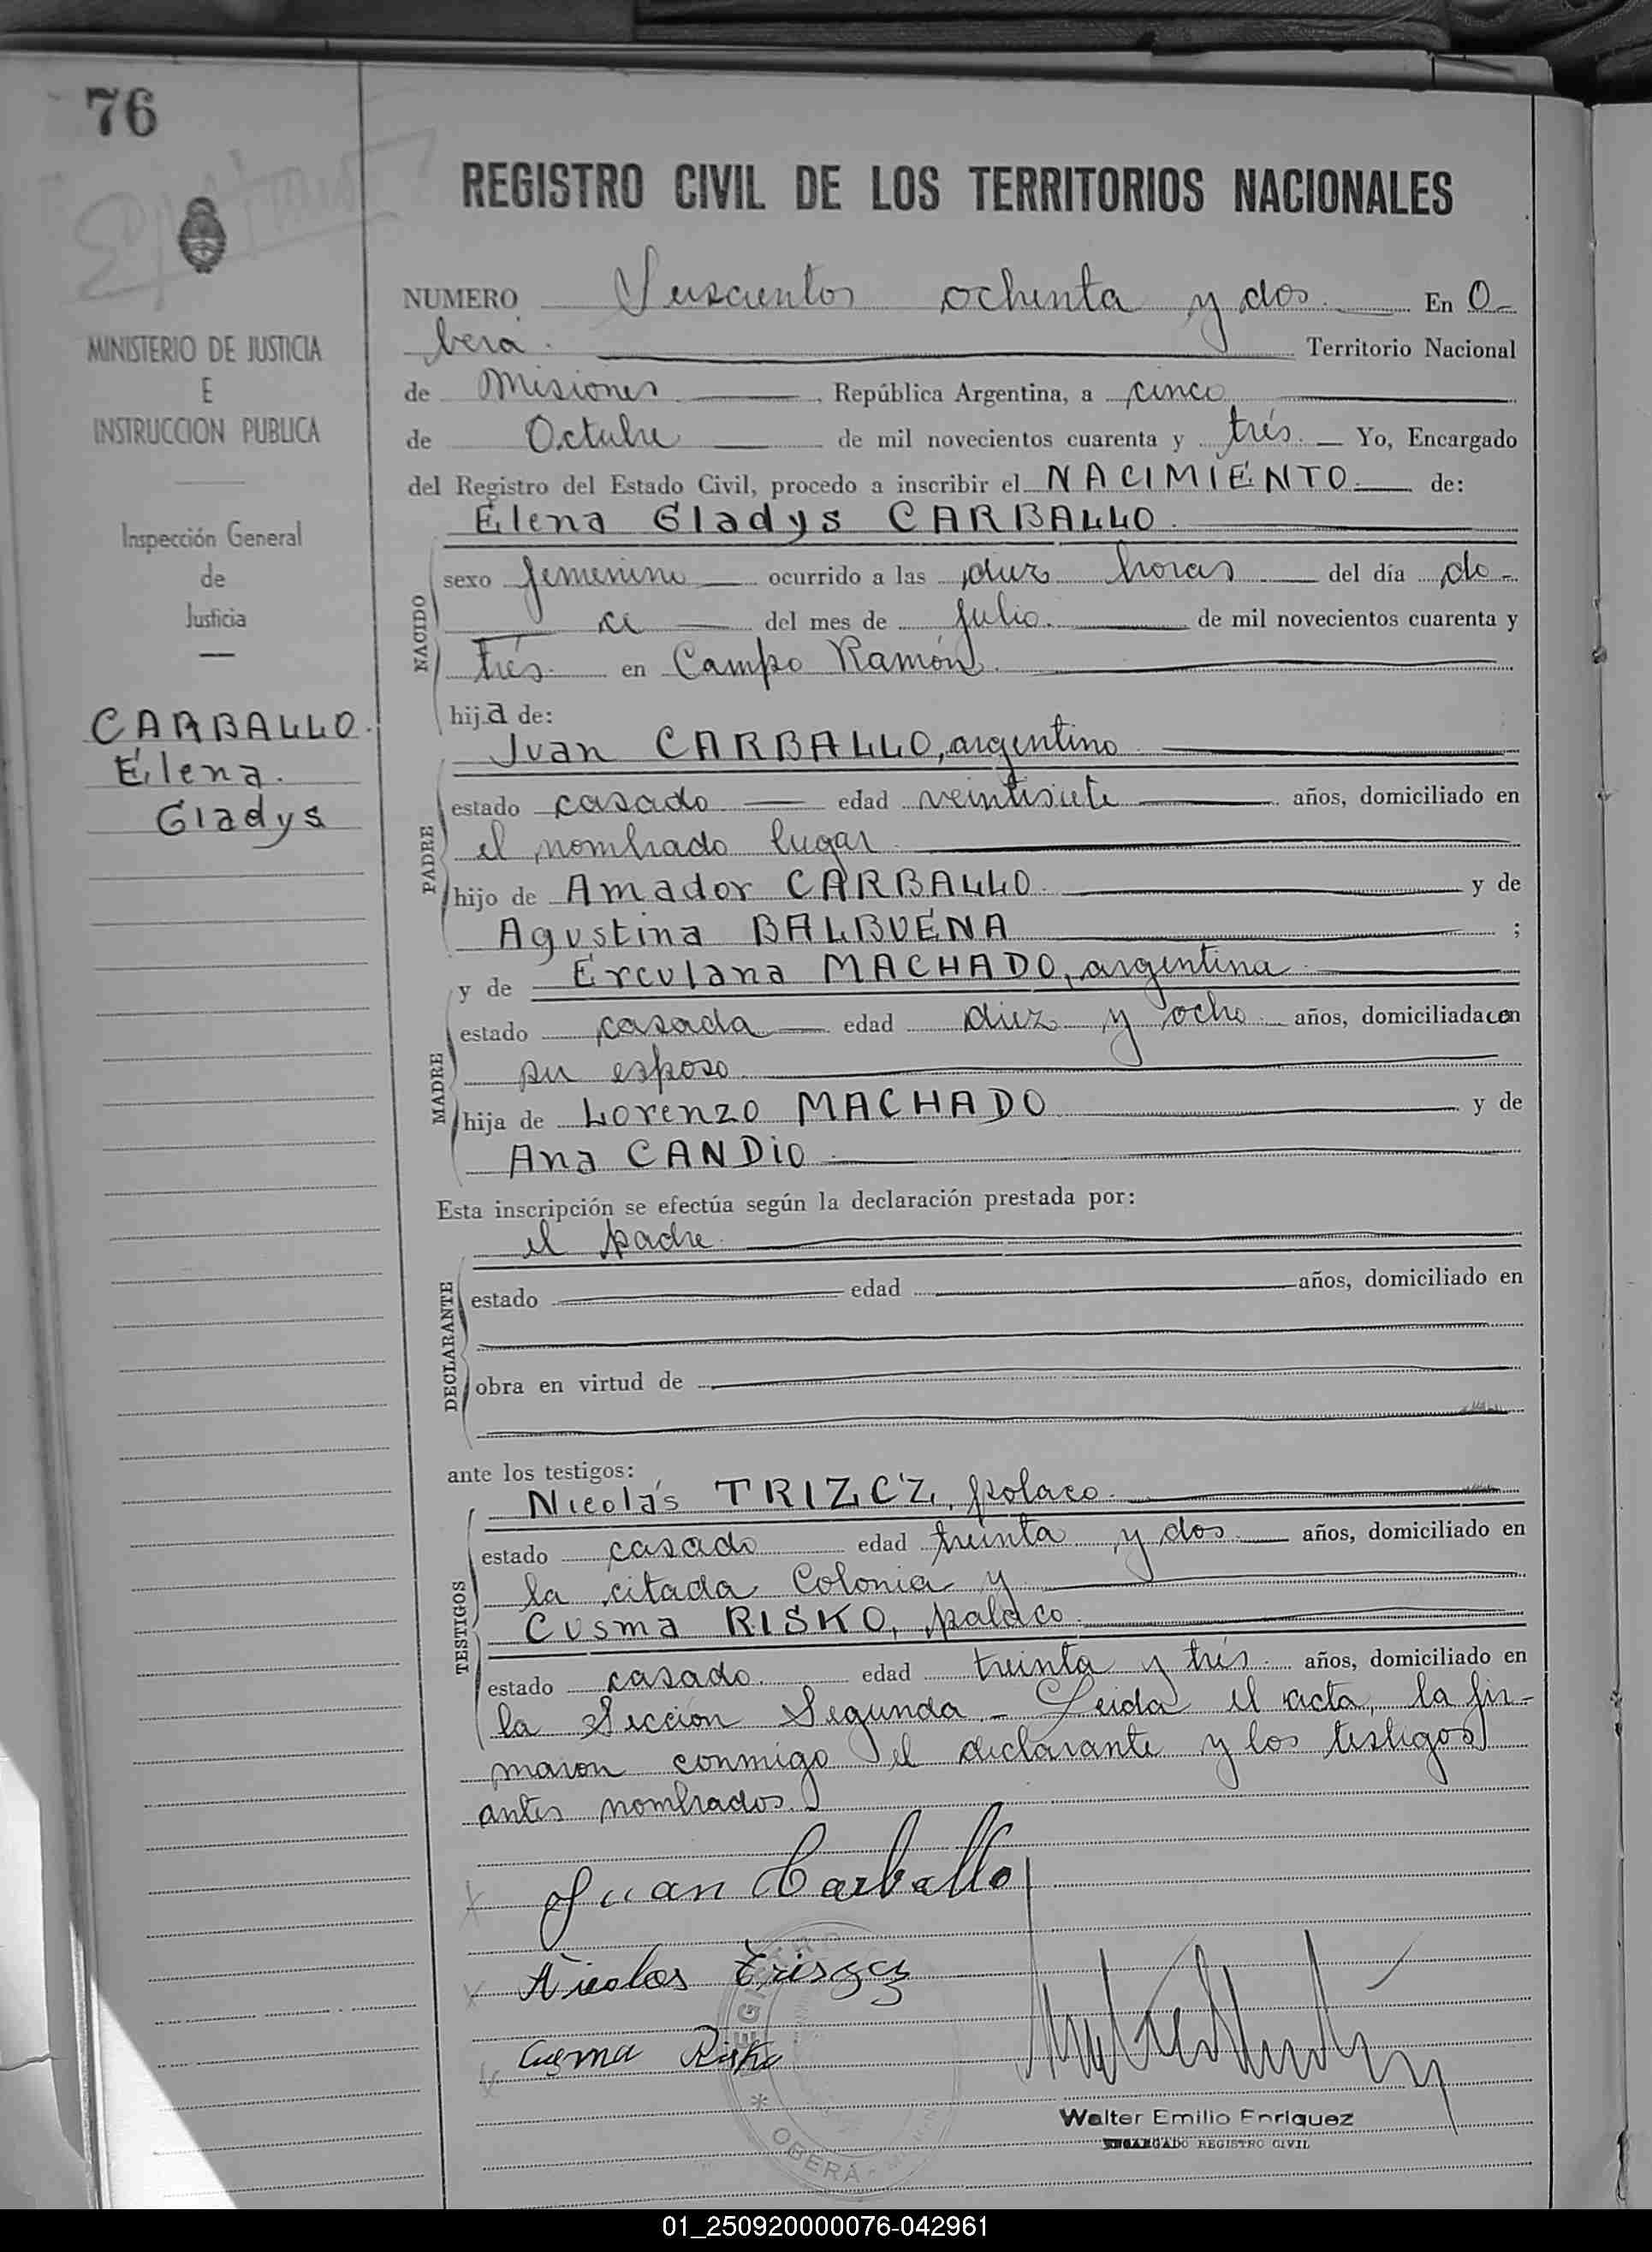 76
REGISTRO CIVIL DE LOS TERRITORIOS NACIONALES
MINISTERIO DE JUSTICIA
E
INSTRUCCION PUBLICA
Inspección General
de
Justicia
CARBALLO.
Elena.
Gladys
NUMERO Seiscientos ochenta y dos. En O-
berá. Territorio Nacional
de Misiones República Argentina, a cinco
de Octubre de mil novecientos cuarenta y trés. Yo, Encargado
del Registro del Estado Civil, procedo a inscribir el NACIMIENTO de:
Elena Gladys CARBALLO.
NACIDO
sexo femenino ocurrido a las diez horas del día do-
ce del mes de Julio. de mil novecientos cuarenta y
trés. en Campo Ramón.
hija de:
Juan CARBALLO, argentino
PADRE
estado casado edad veintisiete años, domiciliado en
el nombrado lugar
hijo de Amador CARBALLO y de
Agustina BALBUENA ;
y de Erculana MACHADO, argentina
MADRE
estado casada edad diez y ocho años, domiciliada con
su esposo
hija de Lorenzo MACHADO y de
Ana CANDIO
Esta inscripción se efectúa según la declaración prestada por:
el padre
DECLARANTE
estado edad años, domiciliado en
obra en virtud de
ante los testigos:
Nicolás TRIZCZ, polaco.
TESTIGOS
estado casado edad treinta y dos años, domiciliado en
la citada Colonia y
Cusma RISKO, polaco
estado casado. edad treinta y trés. años, domiciliado en
la Sección Segunda - Leida el acta, la fir-
maron conmigo el declarante y los testigos
antes nombrados.
Juan Carballo
Nicolas
Cusma Risko
OBERÁ
Walter Emilio Enriquez
ENCARGADO REGISTRO CIVIL
01_250920000076-042961